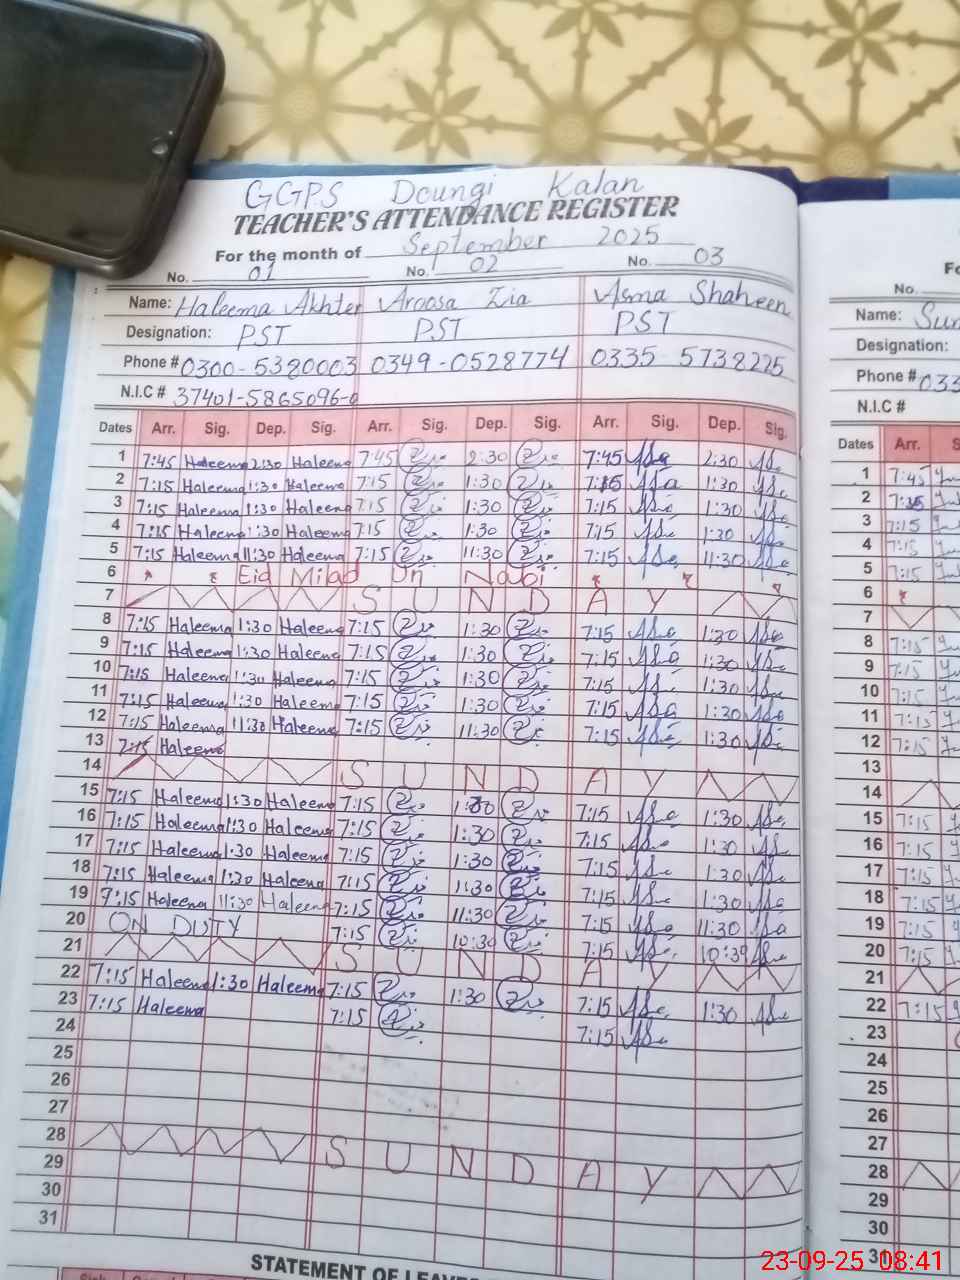 GGPS Doungi Kalan
TEACHER'S ATTENDANCE REGISTER
For the month of September 2025
No. 01 No. 02 No. 03
Name: Haleema Akhter Aroosa Zia Asma Shaheen
Designation: PST PST PST
Phone # 0300-5380003 0349-0528774 0335-5738225
N.I.C # 37401-5865096-0
Dates Arr. Sig. Dep. Sig. Arr. Sig. Dep. Sig. Arr. Sig. Dep. Sig.
1 7:45 Haleema 2:30 Haleema 7:45 2:30 7:45 2:30
2 7:15 Haleema 1:30 Haleema 7:15 1:30 7:15 1:30
3 7:15 Haleema 1:30 Haleema 7:15 1:30 7:15 1:30
4 7:15 Haleema 1:30 Haleema 7:15 1:30 7:15 1:30
5 7:15 Haleema 11:30 Haleema 7:15 11:30 7:15 11:30
6 Eid Milad Un Nabi
7 SUNDAY
8 7:15 Haleema 1:30 Haleema 7:15 1:30 7:15 1:30
9 7:15 Haleema 1:30 Haleema 7:15 1:30 7:15 1:30
10 7:15 Haleema 1:30 Haleema 7:15 1:30 7:15 1:30
11 7:15 Haleema 1:30 Haleema 7:15 1:30 7:15 1:30
12 7:15 Haleema 11:30 Haleema 7:15 11:30 7:15 1:30
13 7:15 Haleema
14 SUNDAY
15 7:15 Haleema 1:30 Haleema 7:15 1:30 7:15 1:30
16 7:15 Haleema 1:30 Haleema 7:15 1:30 7:15 1:30
17 7:15 Haleema 1:30 Haleema 7:15 1:30 7:15 1:30
18 7:15 Haleema 1:30 Haleema 7:15 11:30 7:15 1:30
19 7:15 Haleema 11:30 Haleema 7:15 11:30 7:15 11:30
20 ON DUTY 7:15 10:30 7:15 10:39
21 SUNDAY
22 7:15 Haleema 1:30 Haleema 7:15 1:30 7:15 1:30
23 7:15 Haleema 7:15 7:15
24
25
26
27
28 SUNDAY
29
30
31
STATEMENT OF
No.
Name:
Designation:
Phone # 033
N.I.C #
Dates Arr.
1 7:45
2 7:15
3 7:15
4 7:15
5 7:15
6
7
8 7:15
9 7:15
10 7:15
11 7:15
12 7:15
13
14
15 7:15
16 7:15
17 7:15
18 7:15
19 7:15
20 7:15
21
22 7:15
23
24
25
26
27
28
29
30
31
23-09-25 08:41